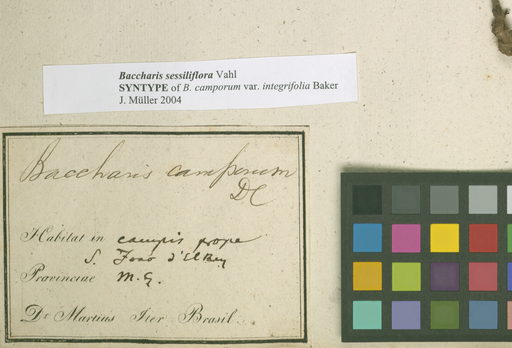 Baccharis sessiliflora Vahl
SYNTYPE of B. camporum var. integrifolia Baker
J. Müller 2004
Baccharis camporum
DC
Habitat in campis prope
S. Joao d'El Rey
Provinciae M. G.
Dr. Martius Iter Brasil.